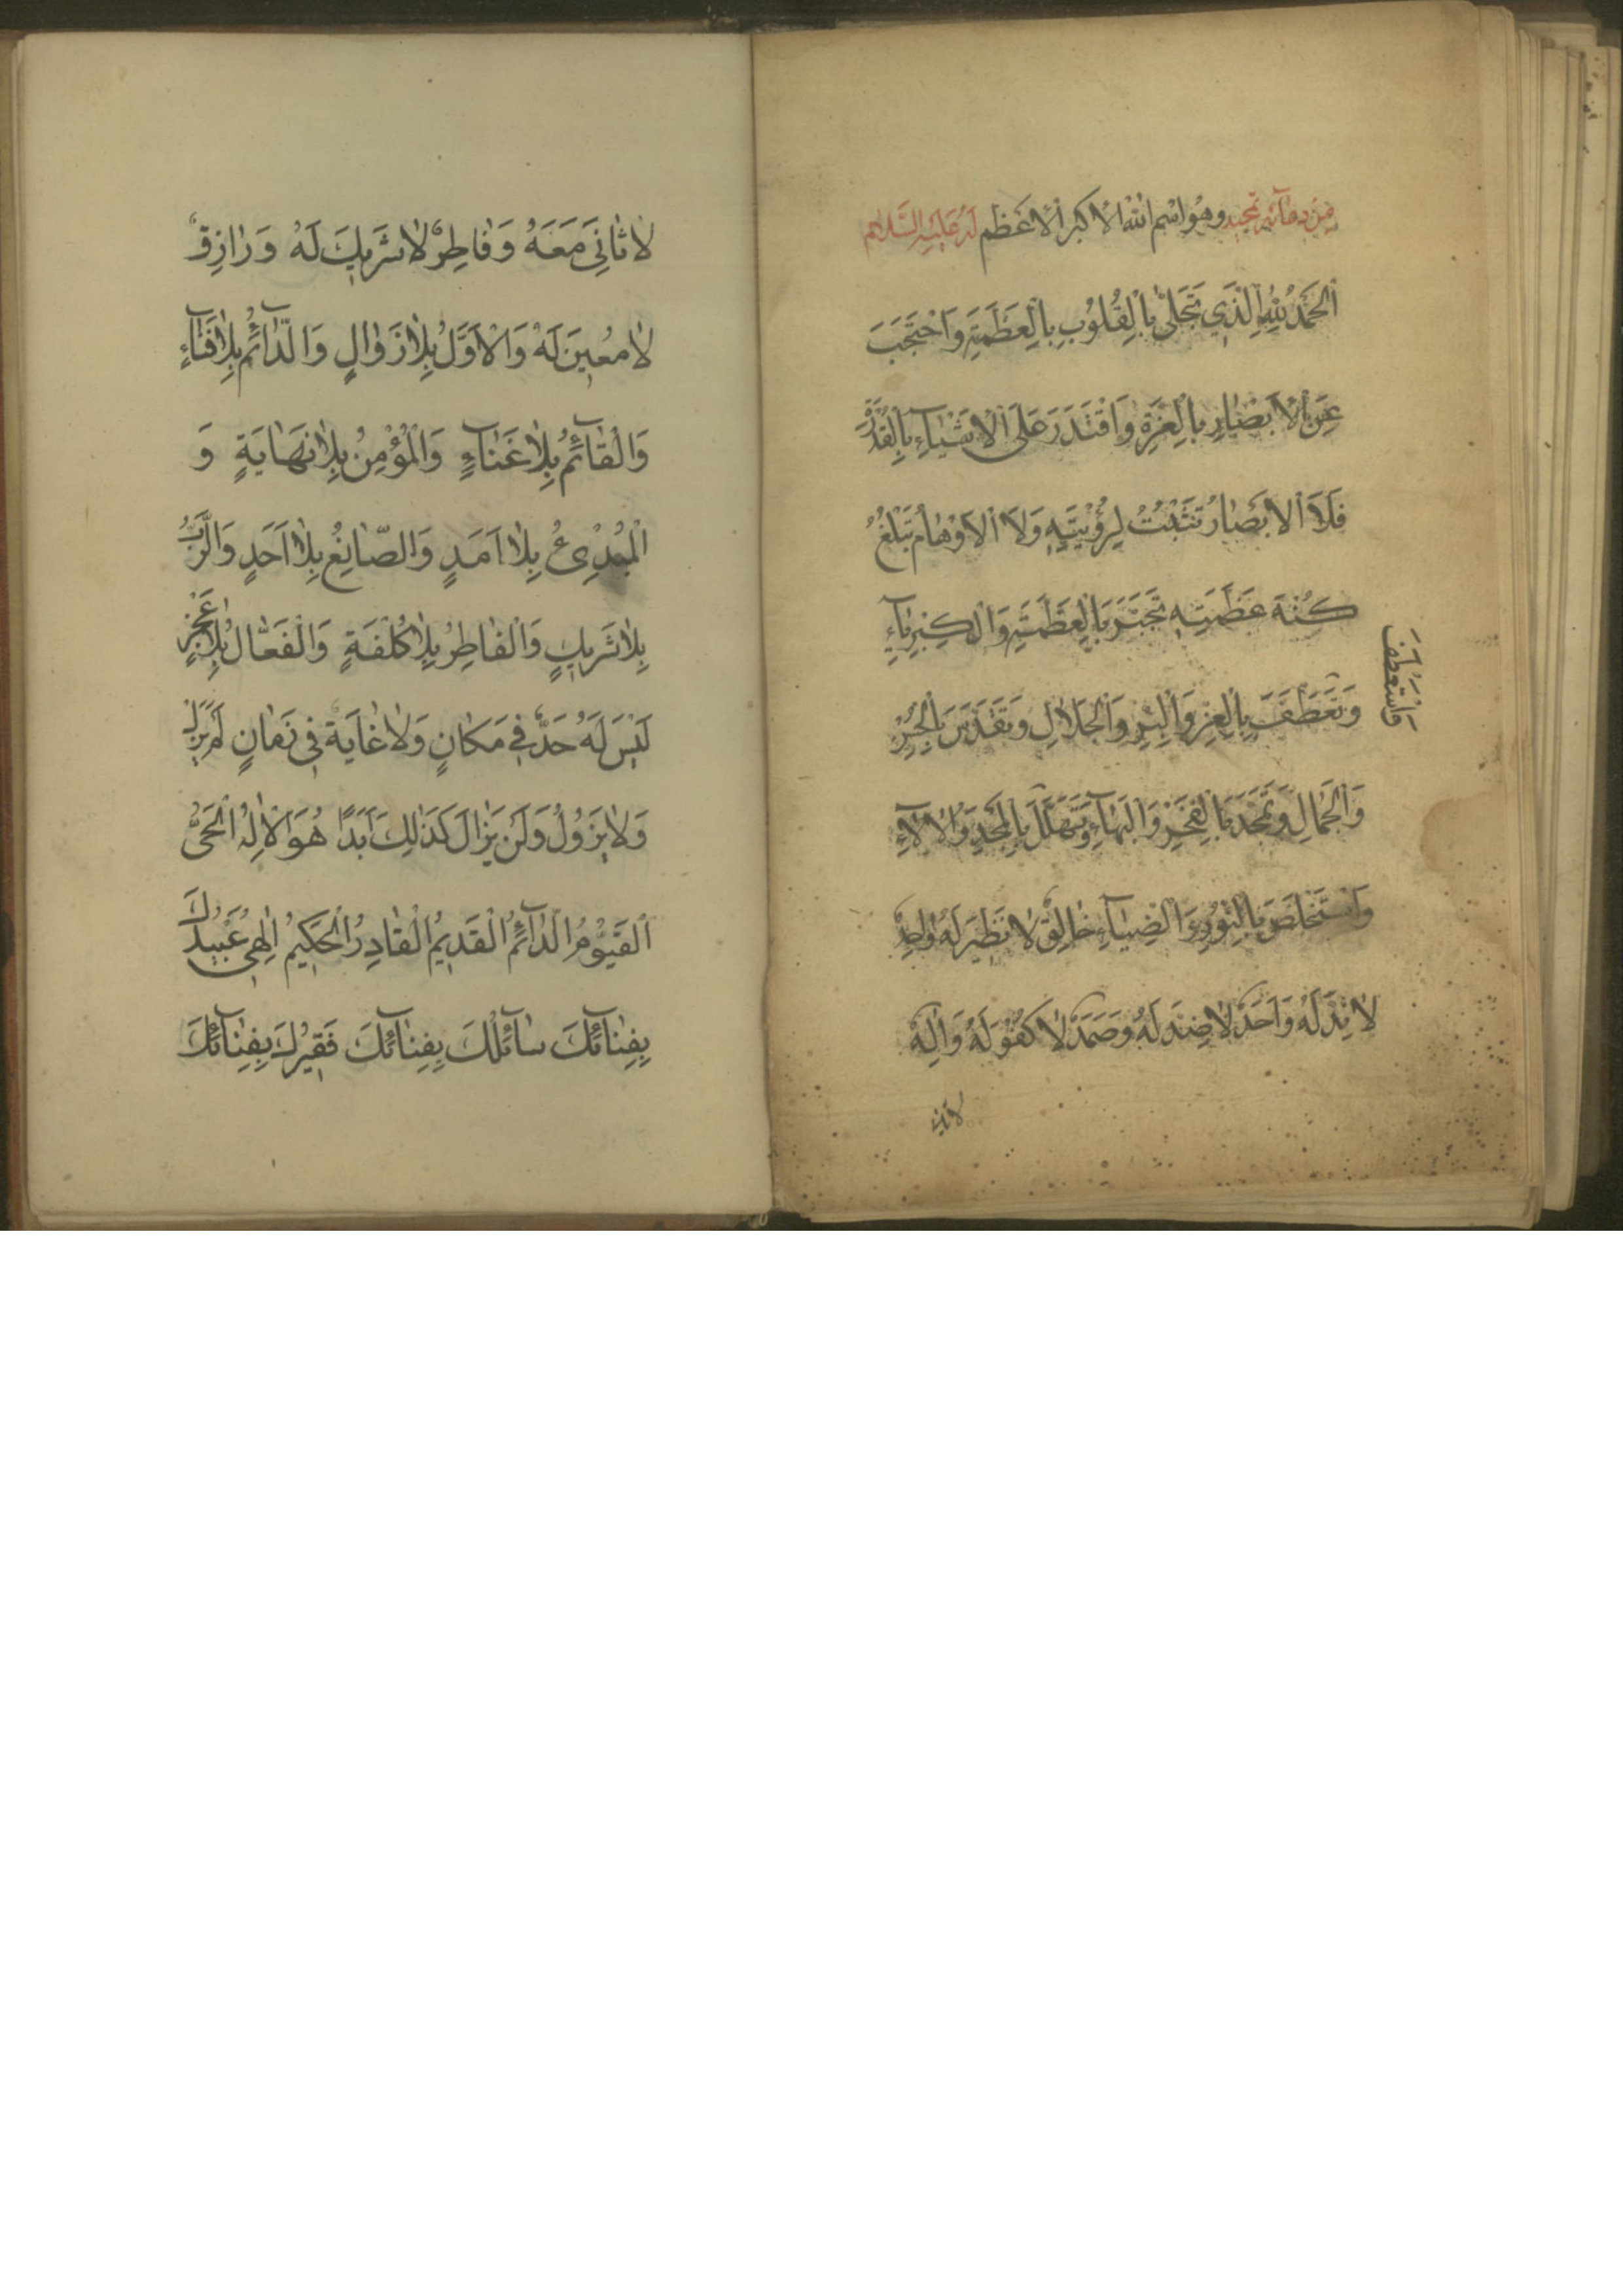 مِنْ دُعَآئِهِ تَمْجِيد وهُوَ اسْم اللّٰهِ الْاَكْبَر الْاَعْظَم لَهُ عَلَيْهِ السَّلَام
اَلْحَمْدُ لِلّٰهِ الَّذِي تَجَلّٰى بِالْقُلُوبِ بِالْعَظَمَةِ وَاحْتَجَبَ
عَنِ الْاَبْصَارِ بِالْعِزَّةِ وَاقْتَدَرَ عَلَى الْاَشْيَآءِ بِالْقُدْرَةِ
فَلَا الْاَبْصَارُ تَثْبُتُ لِرُؤْيَتِهِ وَلَا الْاَوْهَامُ تَبْلُغُ
كُنْهَ عَظَمَتِهِ تَجَبَّرَ بِالْعَظَمَةِ وَالْكِبْرِيَآءِ
وَتَعَطَّفَ بِالْعِزِّ وَالْبِرِّ وَالْجَلَالِ وَتَقَدَّسَ بِالْحُسْنِ
وَاسْتَعْطَفَ
وَالْجَمَالِ وَتَمَجَّدَ بِالْفَخْرِ وَالْبَهَآءِ وَتَهَلَّلَ بِالْمَجْدِ وَالْاٰلَآءِ
وَاسْتَخْلَصَ بِالنُّورِ وَالضِّيَآءِ خَالِقٌ لَا نَظِيرَ لَهُ وَاحِدٌ
لَا نِدَّ لَهُ وَاَحَدٌ لَا ضِدَّ لَهُ وَصَمَدٌ لَا كُفْوَ لَهُ وَاِلٰهٌ
لَا ثَانِيَ
لَا ثَانِيَ مَعَهُ وَفَاطِرٌ لَا شَرِيكَ لَهُ وَرَازِقٌ
لَا مُعِينَ لَهُ وَالْاَوَّلُ بِلَا زَوَالٍ وَالدَّآئِمُ بِلَا فَنَآءٍ
وَالْقَآئِمُ بِلَا عَنَآءٍ وَالْمُؤْمِنُ بِلَا نِهَايَةٍ وَ
الْمُبْدِئُ بِلَا اَمَدٍ وَالصَّانِعُ بِلَا اَحَدٍ وَالرَّبُّ
بِلَا شَرِيكٍ وَالْفَاطِرُ بِلَا كُلْفَةٍ وَالْفَعَّالُ بِلَا عَجْزٍ
لَيْسَ لَهُ حَدٌّ فِي مَكَانٍ وَلَا غَايَةٌ فِي زَمَانٍ لَمْ يَزَلْ
وَلَا يَزُولُ وَلَنْ يَزَالَ كَذٰلِكَ اَبَدًا هُوَ الْاِلٰهُ الْحَيُّ
اَلْقَيُّوْمُ الدَّآئِمُ الْقَدِيمُ الْقَادِرُ الْحَكِيمُ اِلٰهِي عُبَيْدُكَ
بِفِنَآئِكَ سَآئِلُكَ بِفِنَآئِكَ فَقِيرُكَ بِفِنَآئِكَ